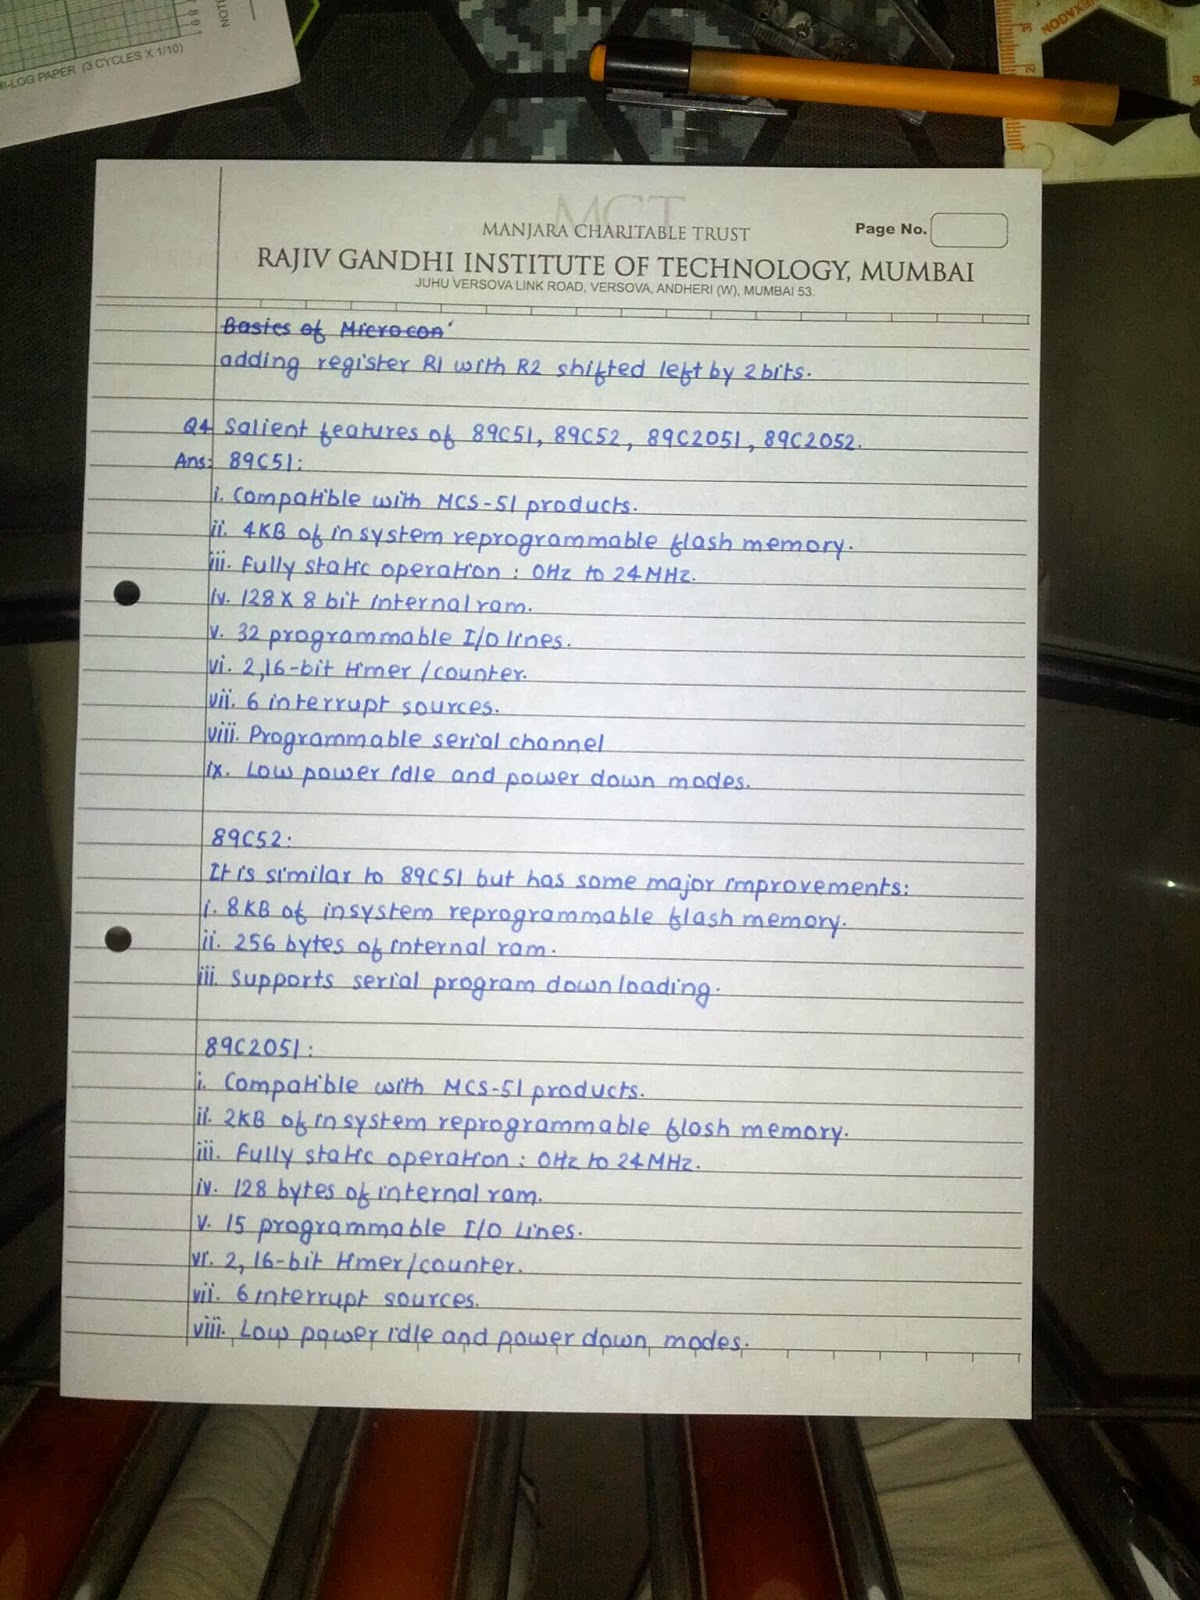 NOTI
1 8 6 8
MI-LOG PAPER (3 CYCLES X 1/10)
HEXAGON
MCT
MANJARA CHARITABLE TRUST
Page No.
RAJIV GANDHI INSTITUTE OF TECHNOLOGY, MUMBAI
JUHU VERSOVA LINK ROAD, VERSOVA, ANDHERI (W), MUMBAI 53.
Basics of Microcon
adding register R1 with R2 shifted left by 2 bits.
Q4 Salient features of 89C51, 89C52, 89C2051, 89C2052.
Ans: 89C51:
i. Compatible with MCS-51 products.
ii. 4KB of insystem reprogrammable flash memory.
iii. Fully static operation : 0Hz to 24MHz.
iv. 128 X 8 bit internal ram.
v. 32 programmable I/O lines.
vi. 2,16-bit timer/counter.
vii. 6 interrupt sources.
viii. Programmable serial channel
ix. Low power idle and power down modes.
89C52:
It is similar to 89C51 but has some major improvements:
i. 8KB of insystem reprogrammable flash memory.
ii. 256 bytes of internal ram.
iii. Supports serial program downloading.
89C2051:
i. Compatible with MCS-51 products.
ii. 2KB of insystem reprogrammable flash memory.
iii. Fully static operation : 0Hz to 24MHz.
iv. 128 bytes of internal ram.
v. 15 programmable I/O Lines.
vi. 2, 16-bit timer/counter.
vii. 6 interrupt sources.
viii. Low power idle and power down modes.